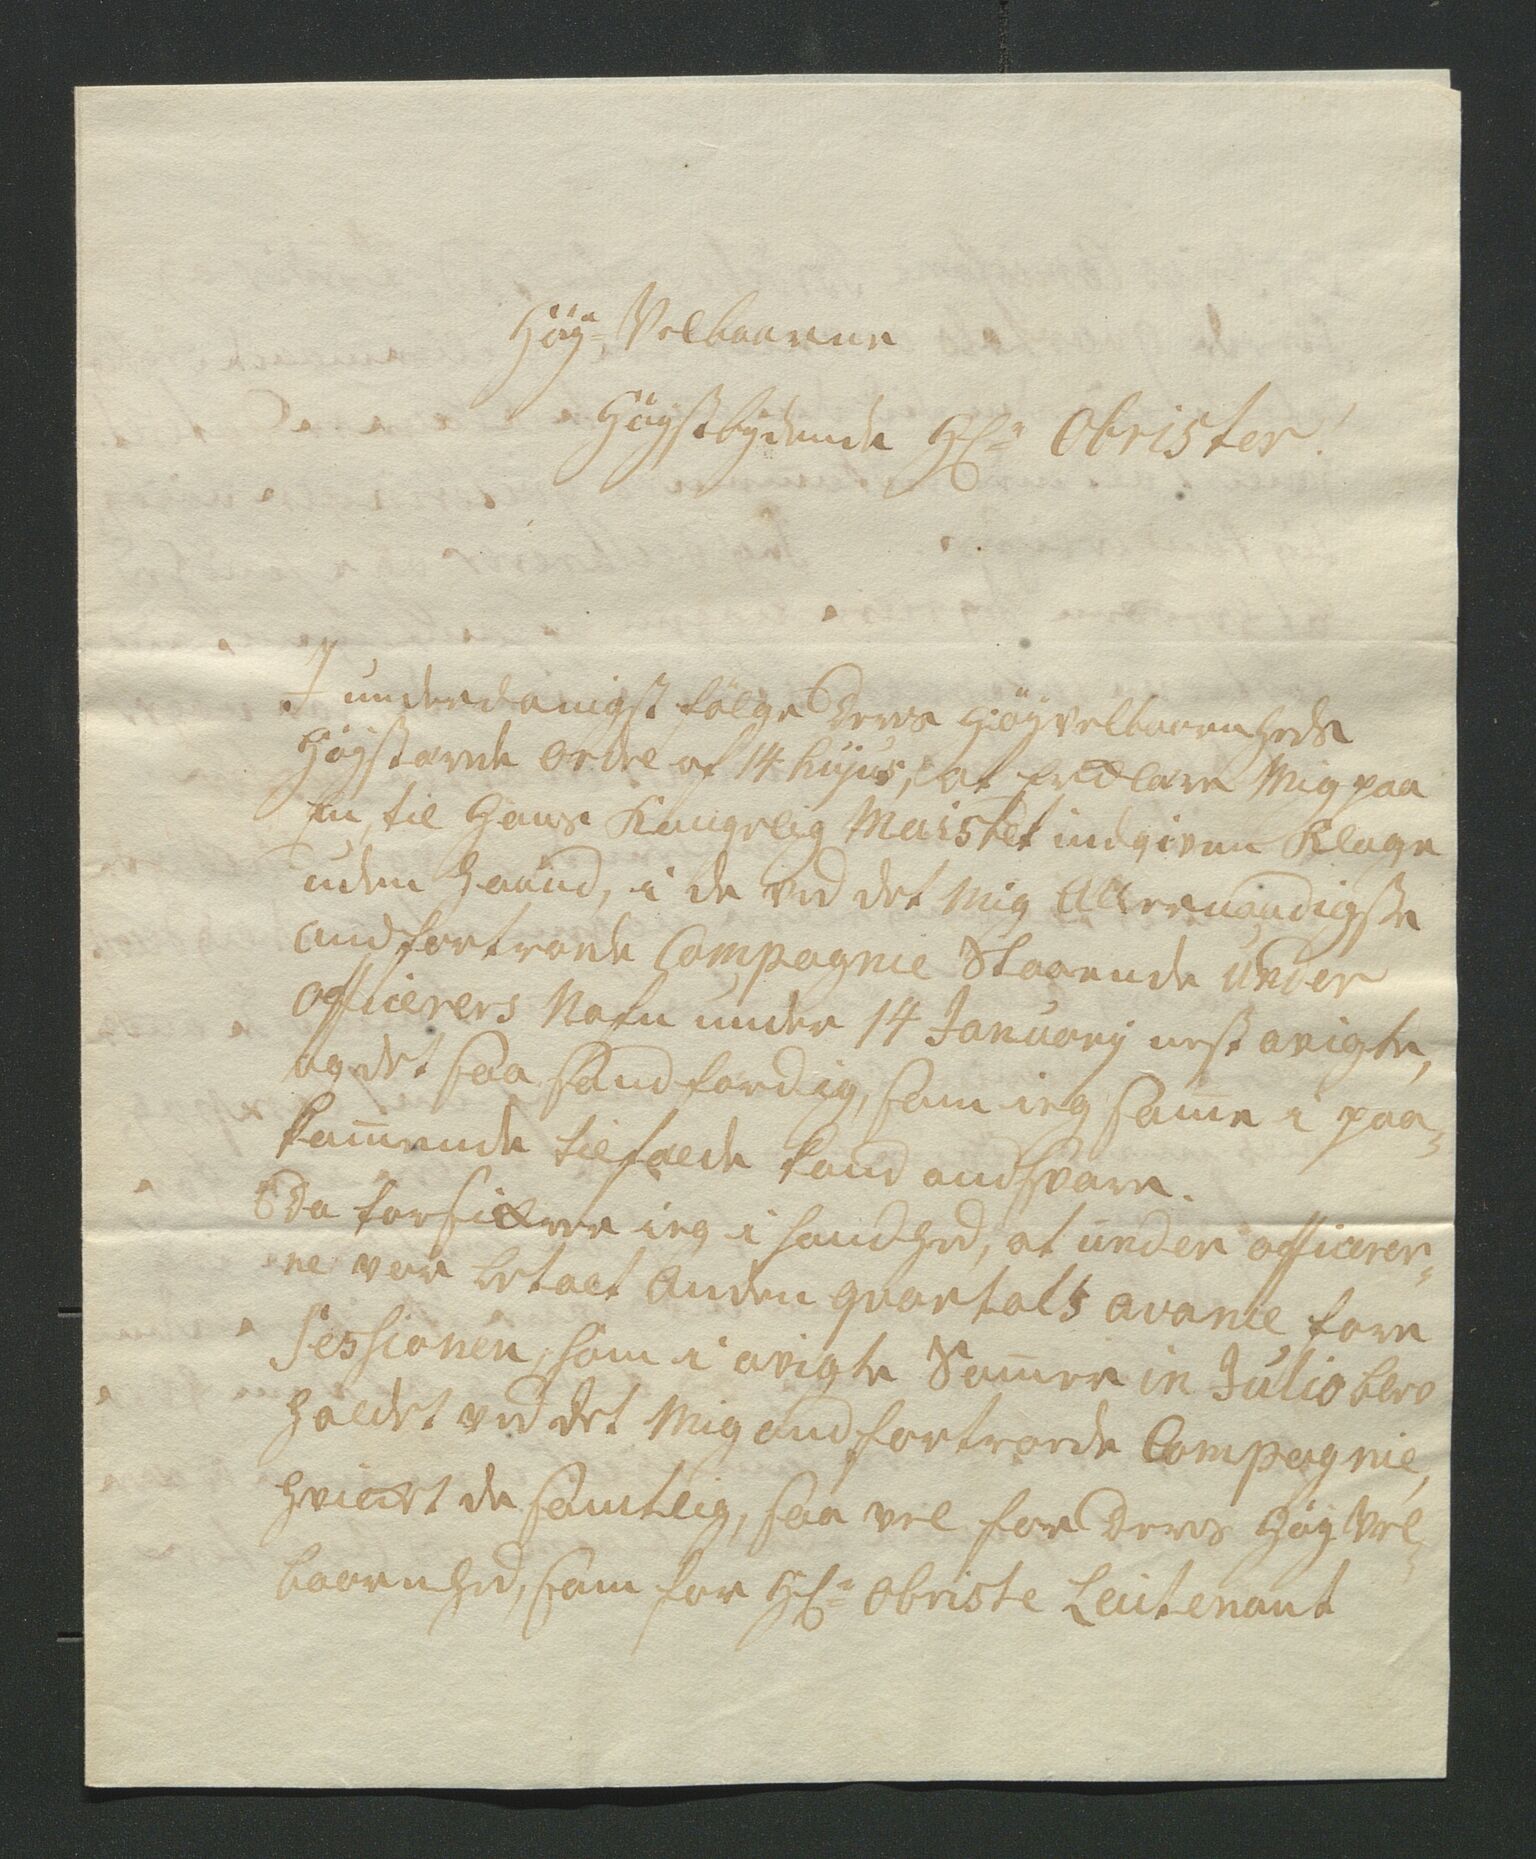 Höy- Velbaarne
Höystbydende Hr: Obrister!
I underdanigst fölge Deres Höyvelbaarenheds
Höystærede Ordre af 14 hujus, at erclære Mig paa
en, til Hans Kongelig Maistet indgiven Klage
uden Haand, i de ved det Mig Allernaadigste
andfortroede Compagnie Staaende Under
officerers Nafn under 14 January nest avigte,
og det saa sandfærdig, som ieg samme i paa-
kommende tilfælde kand andsvare.
Da forsickrer ieg i sandhed, at under officerer-
ne var betalt Anden qvartals avance, förn
Sessionen, som i avigte Sommer in Julio blev
holdet ved det Mig andfortroede Compagnie,
hvilket de samtlig, saa vel for Deres HöyVel-
baarenhed, som for Hr: Obriste Leutenant